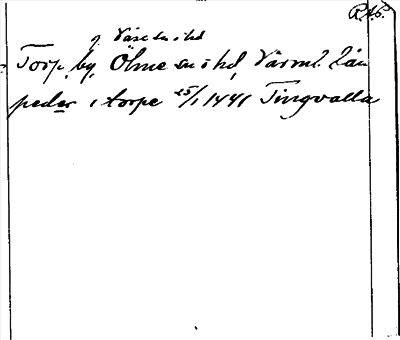 RAp.
i Väse sn o hd
Torp, by, Ölme sn o hd, Värml. län
peder i torpe 25/1 1441 Tingvalla